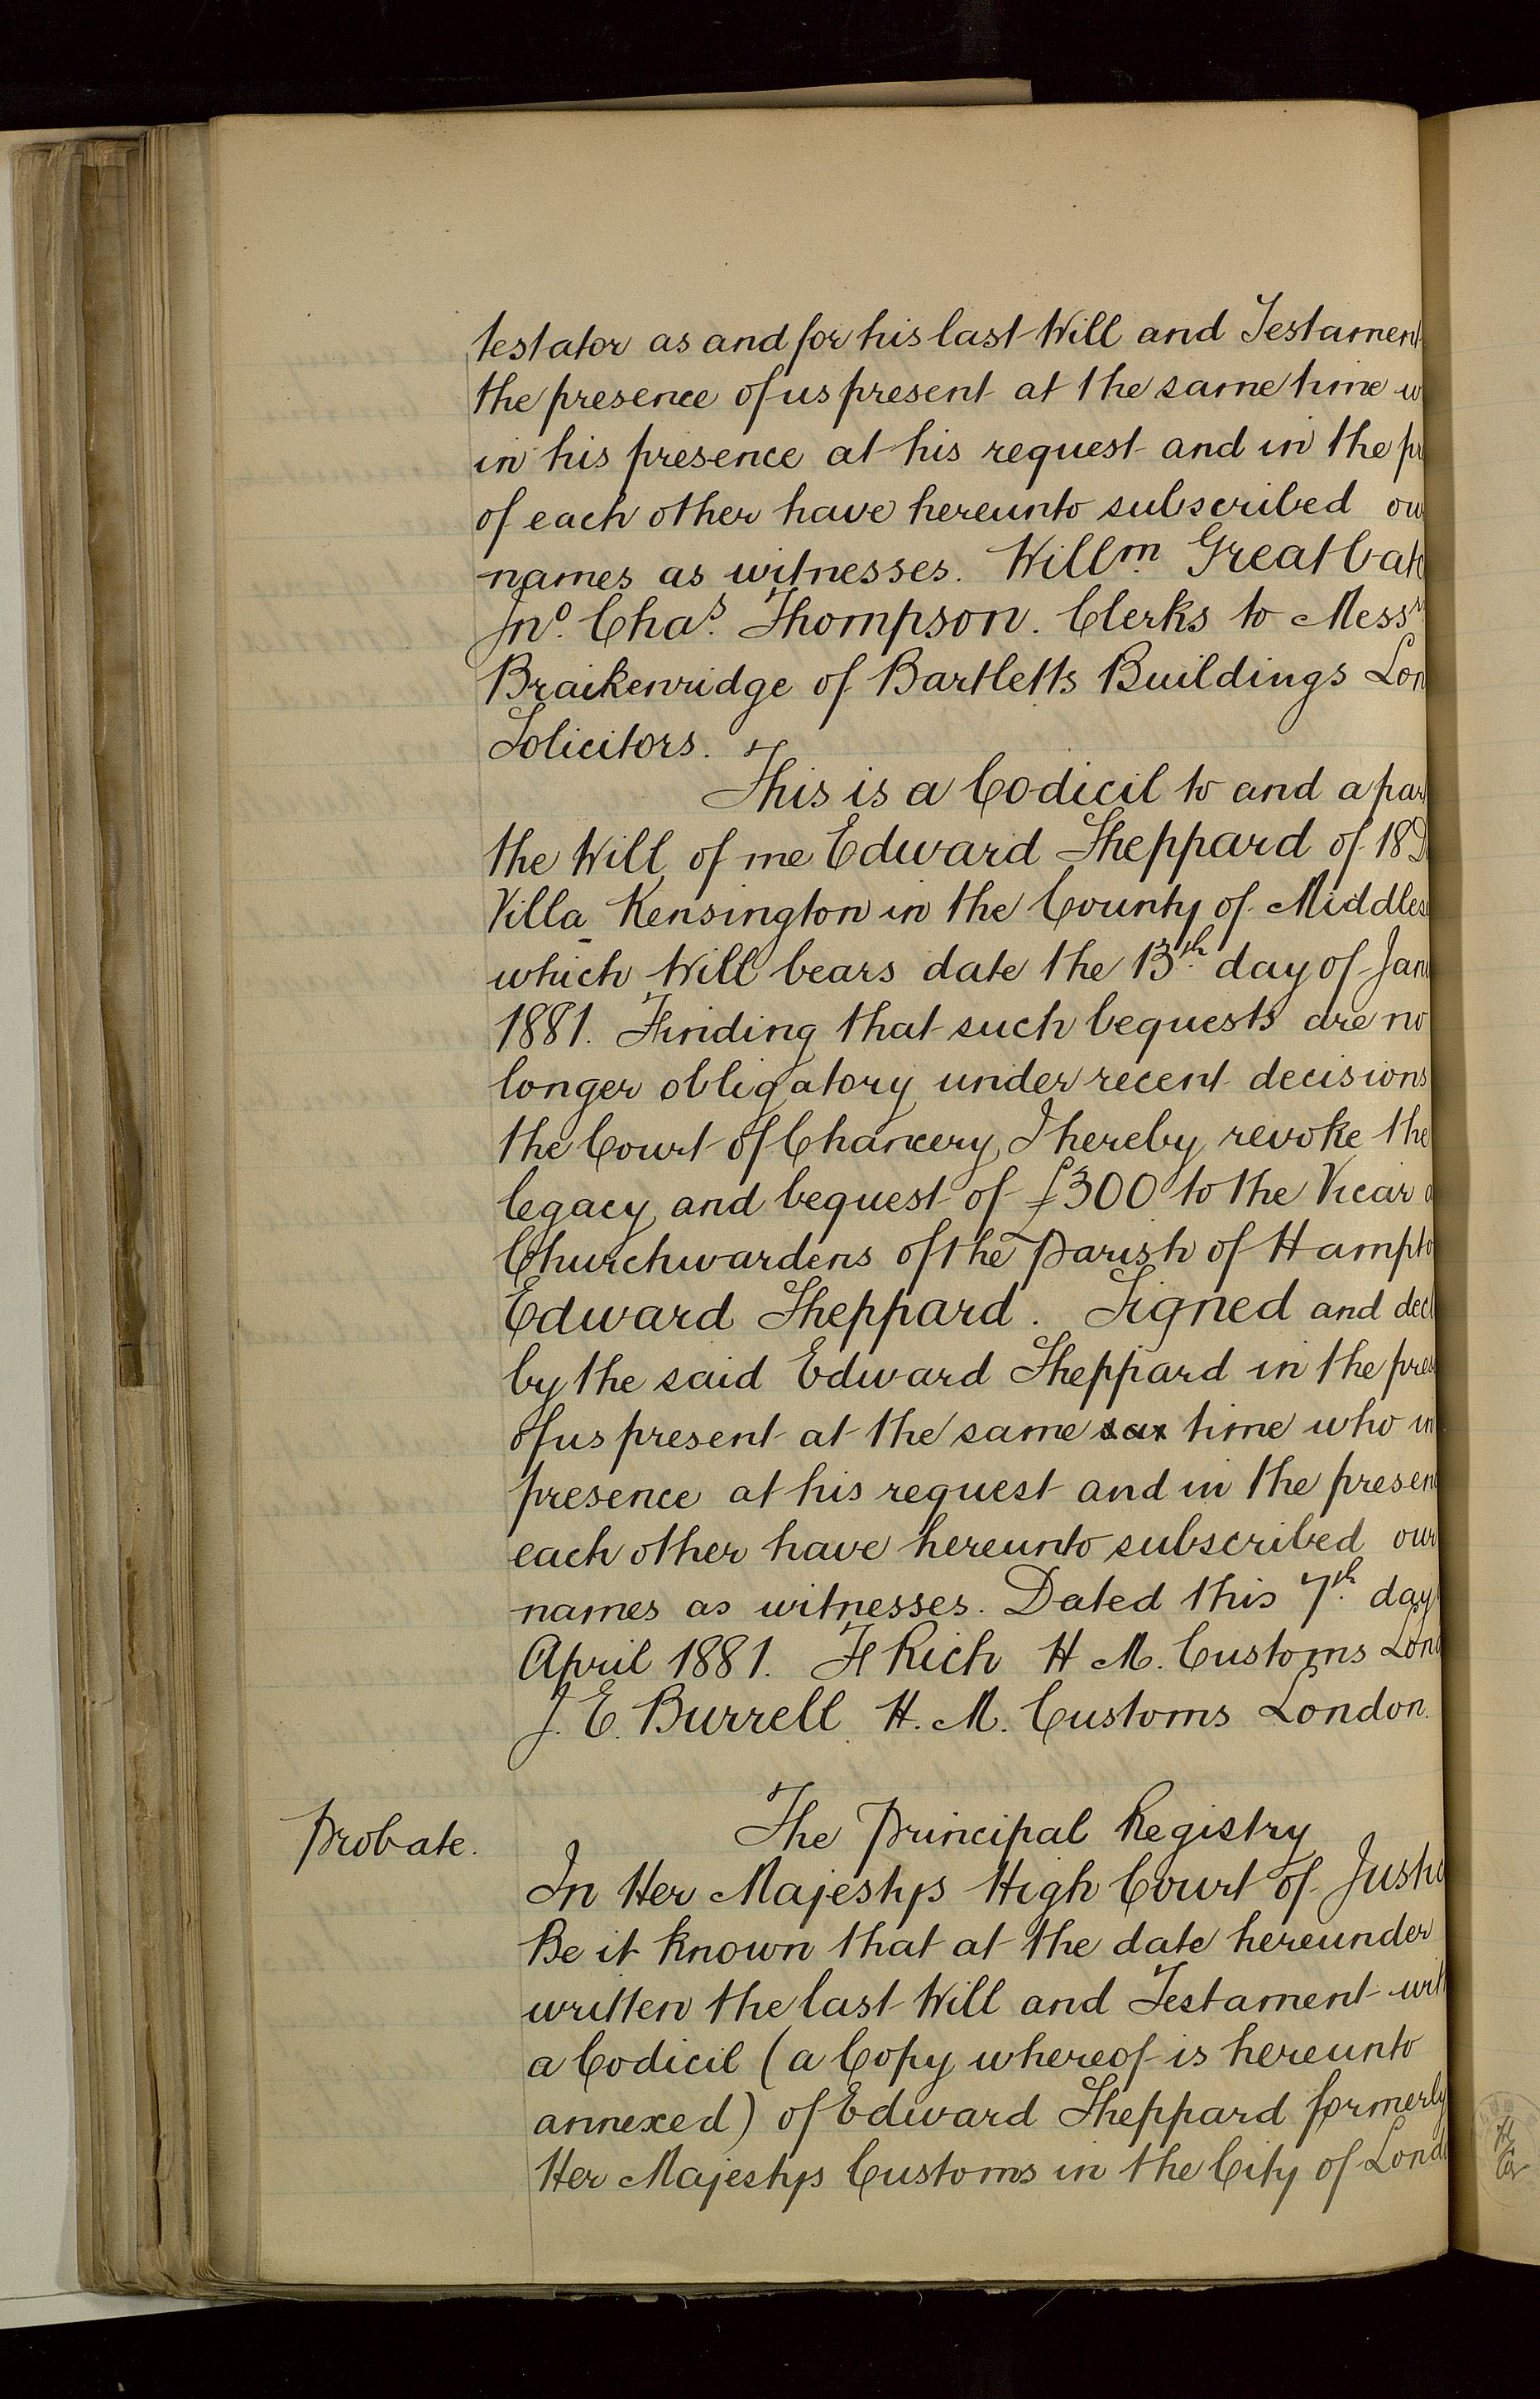 testator as and for his last Will and Testament
the presence of us present at the same time w
in his presence at his request and in the pr
of each other have hereunto subscribed ou
names as witnesses. Willm. Greatbatc
Jno. Chas. Thompson. Clerks to Messrs
Braikenridge of Bartletts Buildings Lon
Solicitors.
This is a Codicil to and a par
the Will of me Edward Sheppard of 18 D
Villa Kensington in the County of Middles
which Will bears date the 13th. day of Janu
1881. Finding that such bequests are no
longer obligatory under recent decisions
the Court of Chancery I hereby revoke the
legacy and bequest of £300 to the Vicar a
Churchwardens of the Parish of Hampto
Edward Sheppard. Signed and decl
by the said Edward Sheppard in the pres
of us present at the same sax time who in
presence at his request and in the presen
each other have hereunto subscribed our
names as witnesses. Dated this 7th. day
April 1881. F Rich H M. Customs Lond
J. E. Burrell H. M. Customs London.
Probate.
The Principal Registry
In Her Majestys High Court of Justic
Be it known that at the date hereunder
written the last Will and Testament with
a Codicil (a Copy whereof is hereunto
annexed) of Edward Sheppard formerly
Her Majestys Customs in the City of Lond